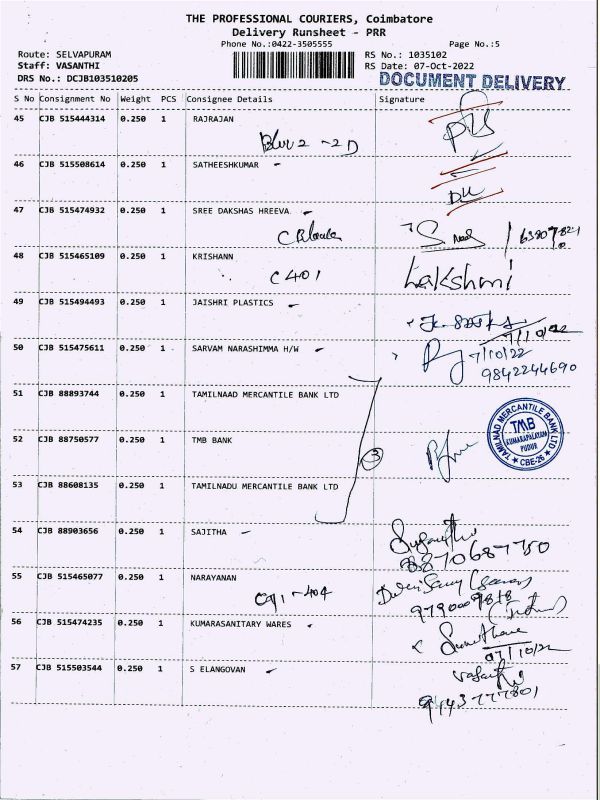 THE PROFESSIONAL COURIERS, Coimbatore
Delivery Runsheet - PRR
Phone No.:0422-3505555
Page No.:5
Route: SELVAPURAM
RS No.: 1035102
Staff: VASANTHI
RS Date: 07-Oct-2022
DRS No.: DCJB103510205
DOCUMENT DELIVERY
S No Consignment No Weight PCS Consignee Details Signature
45 CJB 515444314 0.250 1 RAJRAJAN
46 CJB 515508614 0.250 1 SATHEESHKUMAR
47 CJB 515474932 0.250 1 SREE DAKSHAS HREEVA
48 CJB 515465109 0.250 1 KRISHANN
C 401 Lakshmi
49 CJB 515494493 0.250 1 JAISHRI PLASTICS
7/10/22
50 CJB 515475611 0.250 1 SARVAM NARASHIMMA H/W
7/10/22
9842244690
51 CJB 88893744 0.250 1 TAMILNAAD MERCANTILE BANK LTD
52 CJB 88750577 0.250 1 TMB BANK
3
TAMILNAD MERCANTILE BANK LTD
TMB
KUMARAPALAYAM
PUDUR
CBE-26
53 CJB 88608135 0.250 1 TAMILNADU MERCANTILE BANK LTD
54 CJB 88903656 0.250 1 SAJITHA
8870687750
55 CJB 515465077 0.250 1 NARAYANAN
56 CJB 515474235 0.250 1 KUMARASANITARY WARES
07/10/22
57 CJB 515503544 0.250 1 S ELANGOVAN
9443777801